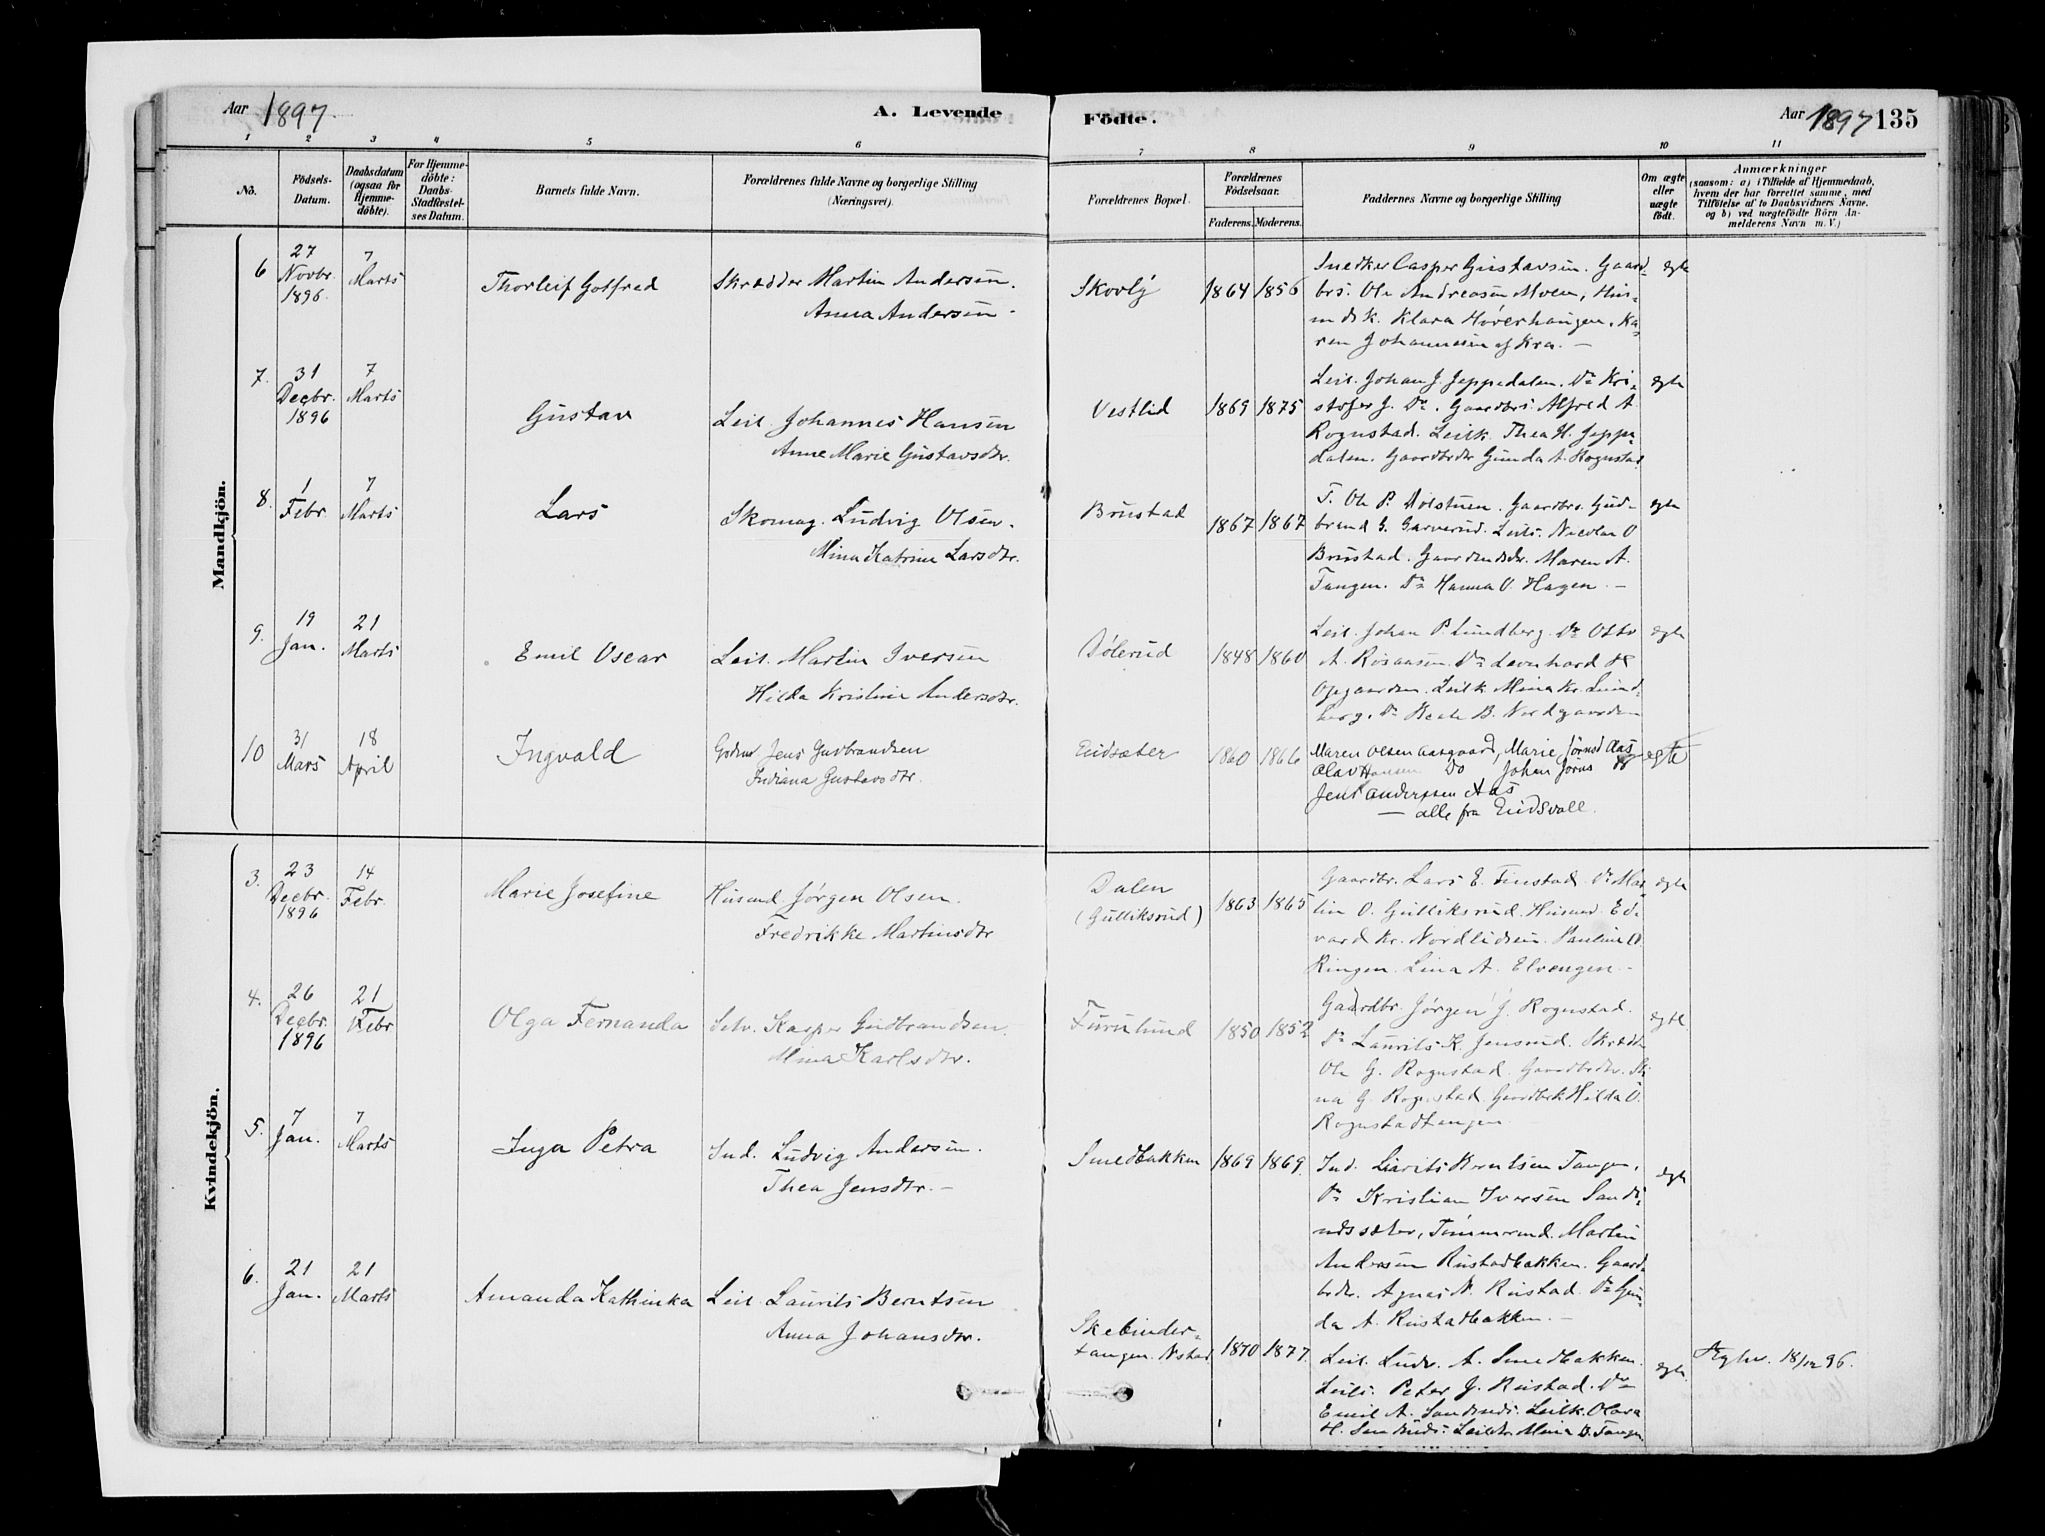 Aar 1897
A. Levende
Födte.
Aar 1897 135
1 2 3 4 5 6 7 8 9 10 11
No.
Födsels-
Datum.
Daabsdatum
(ogsaa for
Hjemme-
döbte).
For Hjemme-
döbte:
Daabs-
Stadfæstel-
ses Datum.
Barnets fulde Navn.
Forældrenes fulde Navne og borgerlige Stilling
(Næringsvei).
Forældrenes Bopæl.
Forældrenes
Födselsaar.
Faderens. Moderens.
Faddernes Navne og borgerlige Stilling
Om ægte
eller
uægte
födt.
Anmærkninger
(saasom: a) i Tilfælde af Hjemmedaab,
hvem der har forrettet samme, med
Tilföielse af to Daabsvidners Navne.
og b) ved uægtefödte Börn An-
melderens Navn m. V.)
Mandkjön.
6
27
Novbr.
1896.
7
Marts
Thorleif Gotfred
Skrædder Martin Andersen.
Anna Andersen.
Skovly
1864 1856
Snedker Casper Gustavsen. Gaard-
brs. Ole Andreasen Moen, Hus-
mdsk. Klara Høverhaugen. Ka-
ren Johannesen af Kra. —
egte
7.
31
Decbr.
1896
7
Marts
Gustav
Leil. Johannes Hansen
Anne Marie Gustavsdtr.
Vestlid
1869 1875
Leil. Johan J. Jeppedalen. Do Kri-
stofer J. Do. Gaardbrs. Alfred A.
Rognstad. Leilk. Thea H. Jeppe-
dalen. Gaardbrdtr Gunda A. Rognstad
egte
8.
1
Febr.
7
Marts
Lars
Skomag. Ludvig Olsen.
Mina Katrine Larsdtr.
Brustad
1867 1867
T. Ole P. Dølstuen. Gaardbrs. Gud-
brand G. Garverud. Leils. Nicolai O
Brustad. Gaardmdsdtr. Maren A.
Tangen. Do Hanna O. Hagen. —
egte
9.
19
Jan.
21
Marts
Emil Oscar
Leil. Martin Iversen
Hilda Kristine Andersdtr.
Dølerud
1848 1860
Leil. Johan P. Lundberg. Do Otto
A. Rosaasen. Do Leonhard H
Opgaarden. Leilk Mina Kr. Lund-
berg. Do Beate B. Nordgaarden
egte
10
31
Mars
18
April
Ingvald
Jens Gudbrandsen
Indiana Gustavsdtr.
Eidsæter
1860 1866
Maren Olsen Aasgaard, Marie Jørnsd Aas
Olav Hansen Do Johan Jørns
Jens Anderssen Aas
— alle fra Eidsvoll.
egte
Kvindekjön.
3.
23
Decbr.
1896
14
Febr.
Marie Josefine
Husmd. Jørgen Olsen.
Fredrikke Martinsdtr
Dalen
(Gulliksrud)
1863 1865
Gaardbr. Lars E. Finstad. Do Mar-
tin O. Gulliksrud. Husmd. Ed-
vard Kr. Nordlidsen. Pauline O.
Ringen. Lina A. Elvengen. —
egte
4.
26
Decbr.
1896
21
Febr
Olga Fernanda
Selv. Kasper Gudbrandsen.
Mina Karlsdtr.
Furulund
1850 1852
Gaardbr. Jørgen J. Rognstad.
Do Laurits K. Jensrud. Skrædd.
Ole G. Rognstad. Gaardbrdtr. Sti-
na G. Rognstad. Gaardbrk Hilda O.
Rognstadtangen
egte
5.
7
Jan.
7
Marts
Inga Petra
Ind. Ludvig Andersen.
Thea Jensdtr. —
Smedbakken
1869 1869.
Ind. Laurits Berntsen Tangen,
Do Kristian Iversen Sand-
ndssæter, Tømmermd. Martin
Andersen Rustadbakken. Gaard-
brdtr. Agnes N. Rustad. Do Gun-
da A. Rustadbakken. —
egte
6.
21
Jan.
21
Marts
Amanda Kathinka
Leil. Laurits Berntsen
Anna Johansdtr.
Skebinder-
tangen. N.stad
1870 1877.
Leil. Ludv. A. Smedbakken.
Leils. Peter J. Rustad. Do
Emil A. Sandsnds. Leilk. Olava
H. Leildtr Mina B. Tangen
egte
18/12 96.